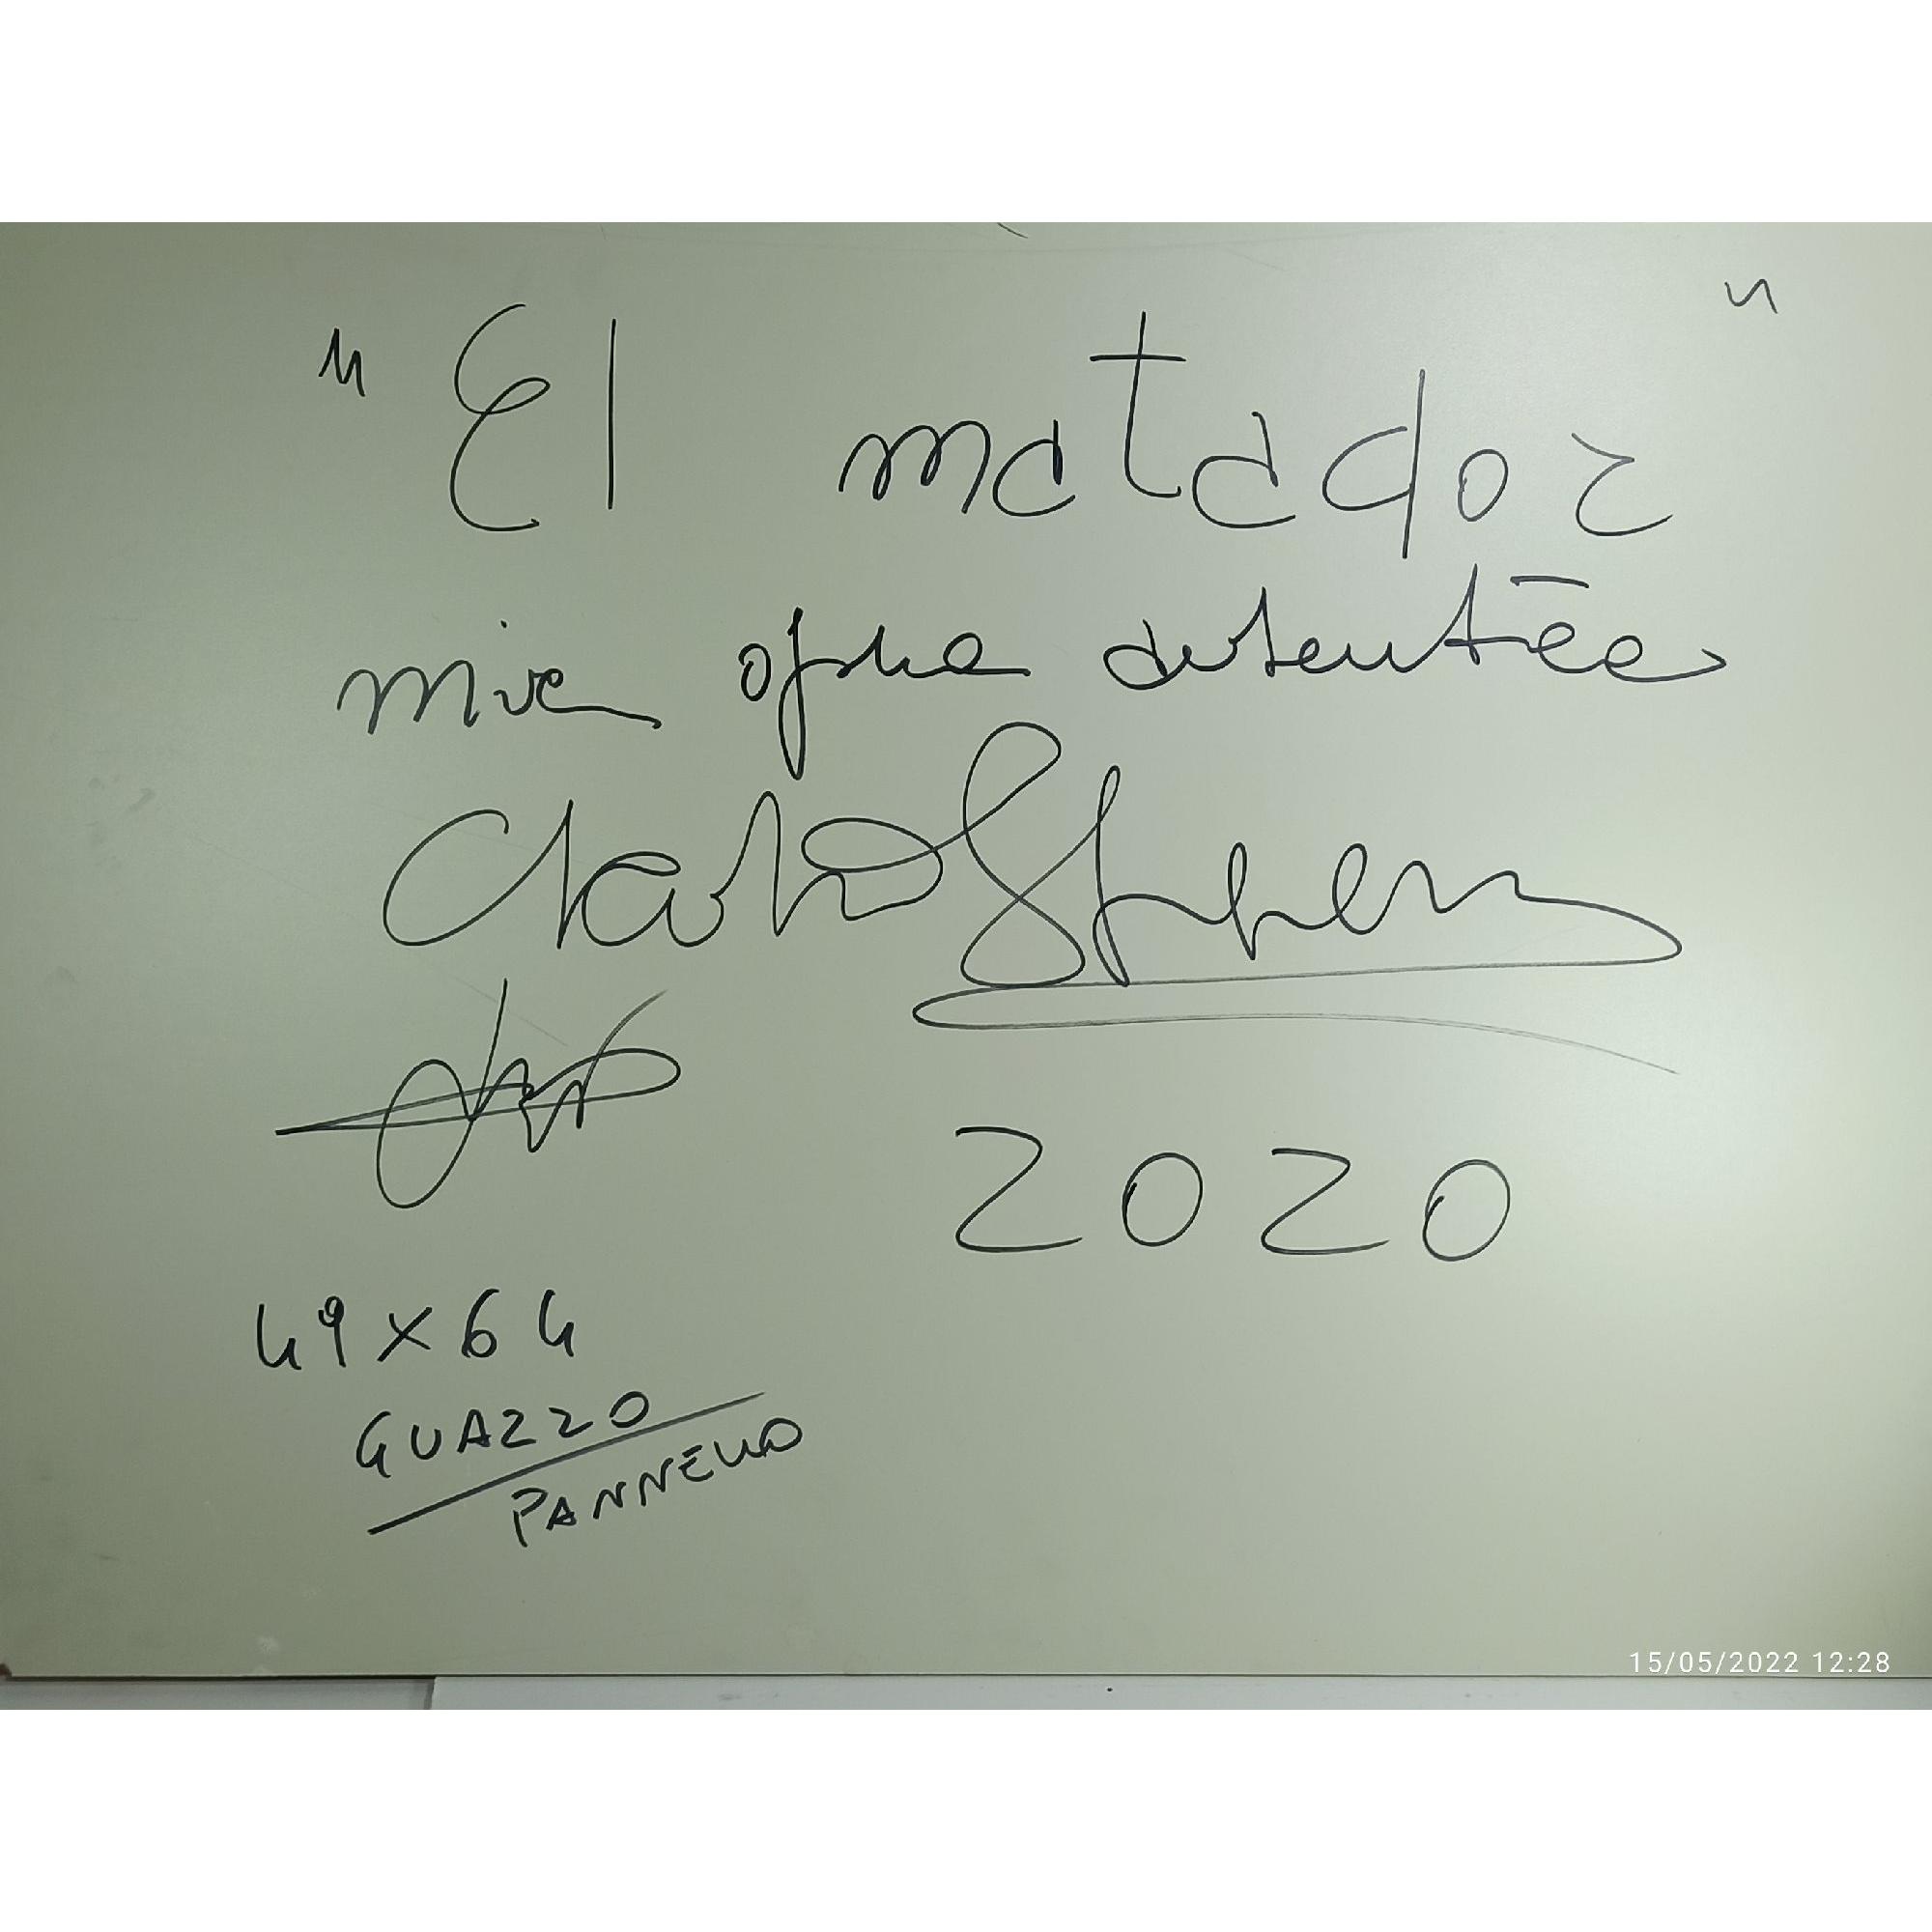 "El matador"
mia opera autentica
2020
49x64
GUAZZO
PANNELLO
15/05/2022 12:28